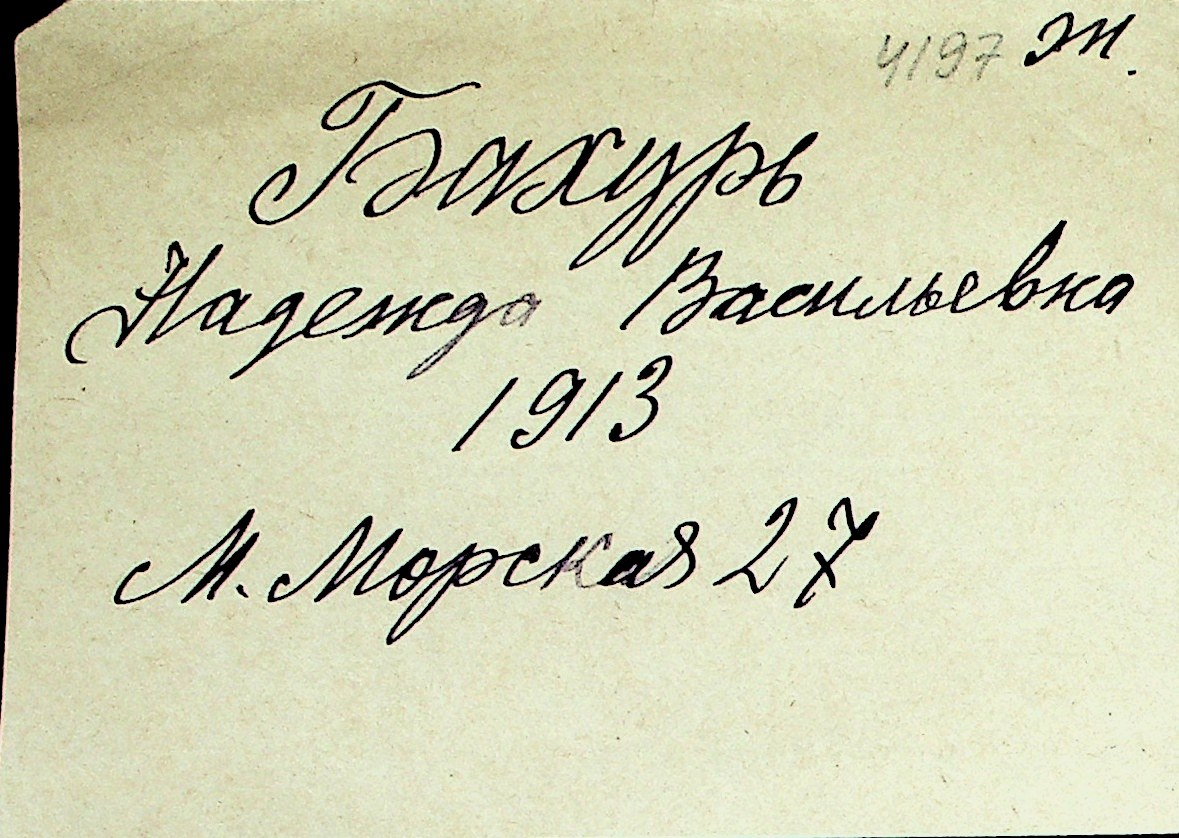 4197 Ж.
Бахурь
Надежда Васильевна
1913
М. Морская 27